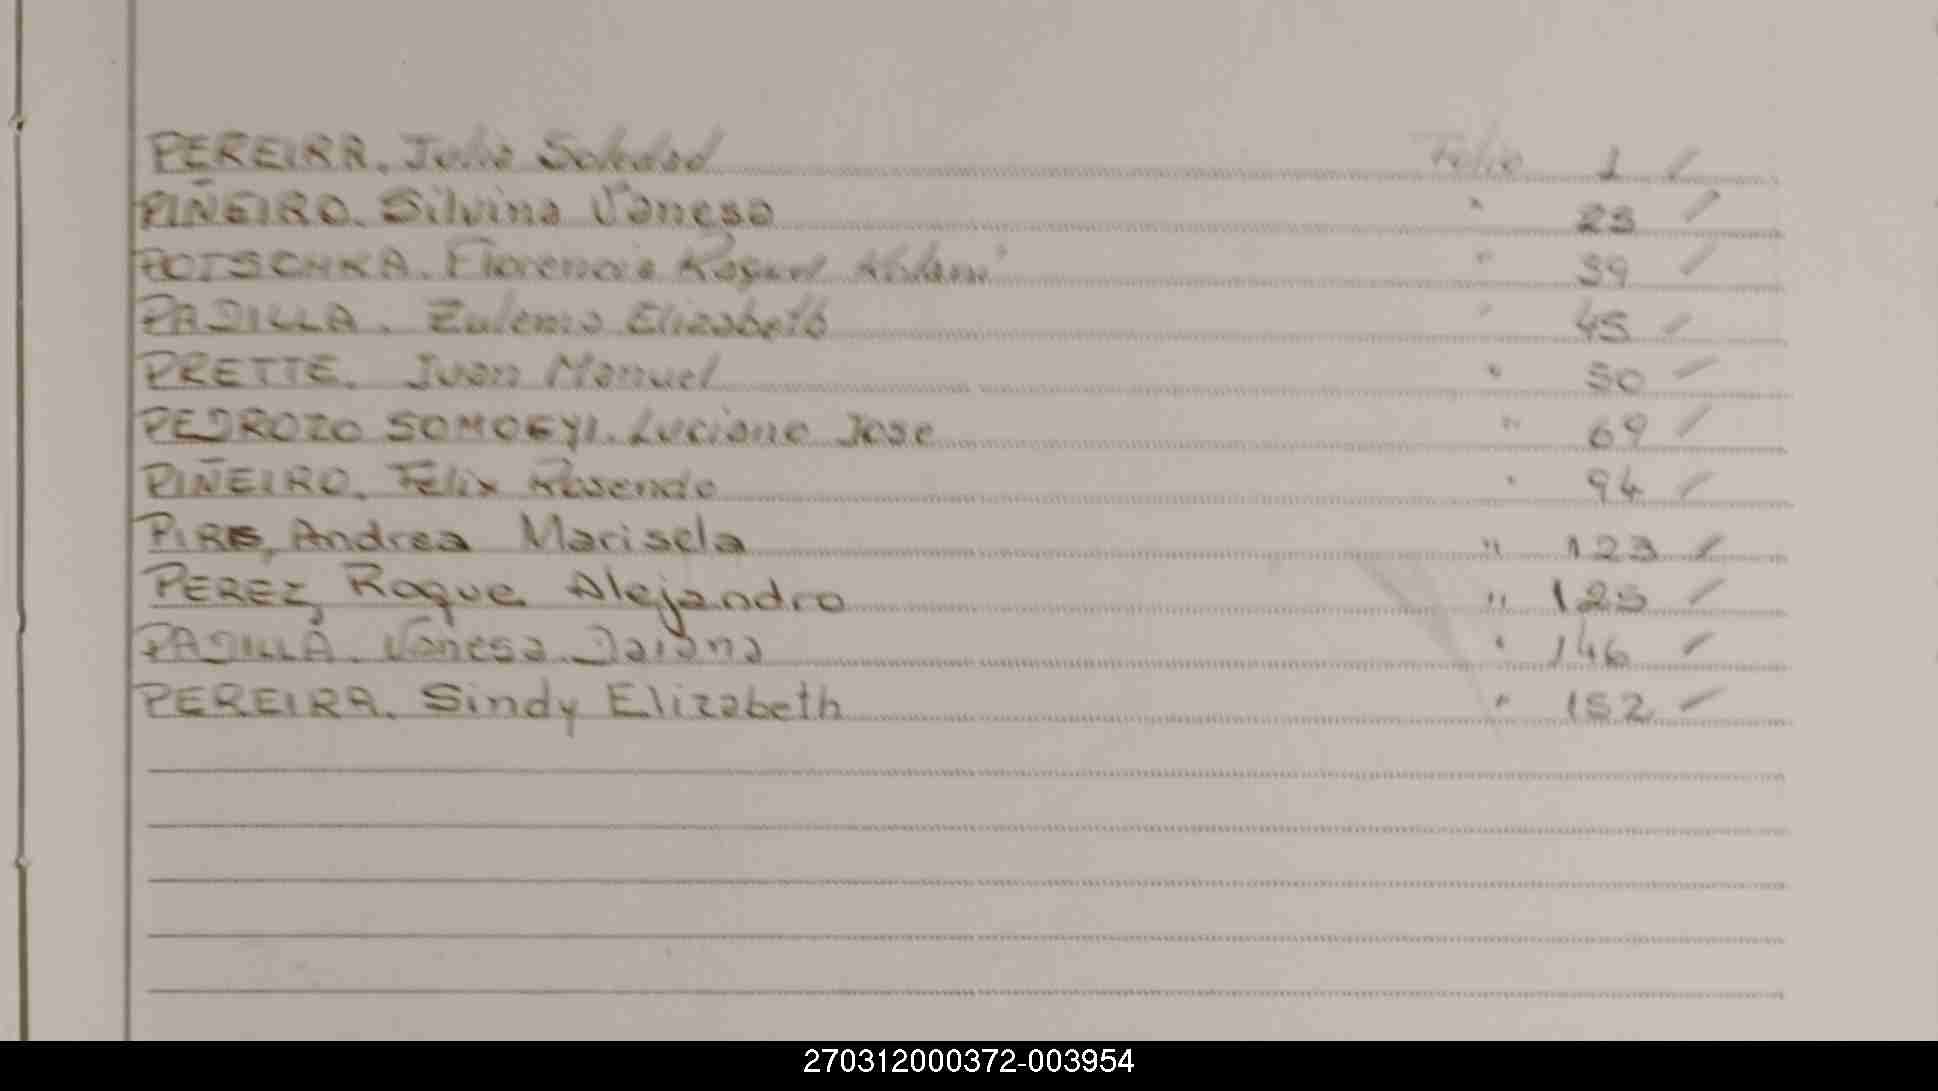 PEREIRA. Julia Soledad Folio 1 /
PIÑEIRO. Silvina Vanesa " 23 /
POTSCHKA. Florencia Raquel " 39 /
PADILLA. Zulema Elizabeth " 45 /
PRETTE. Juan Manuel " 50 /
PEDROZO SOMOGYI. Luciano Jose " 69 /
PIÑEIRO. Felix Rosendo " 94 /
PIRE, Andrea Marisela " 123 /
PEREZ, Roque Alejandro " 125 /
PADILLA. Vanesa Daiana " 146 /
PEREIRA. Sindy Elizabeth " 152 /
270312000372-003954